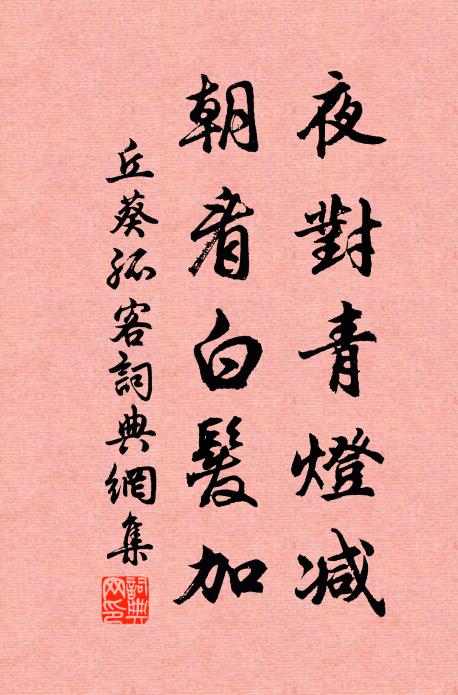 夜對青燈減
朝看白髮加
丘葵孤客詞典網集